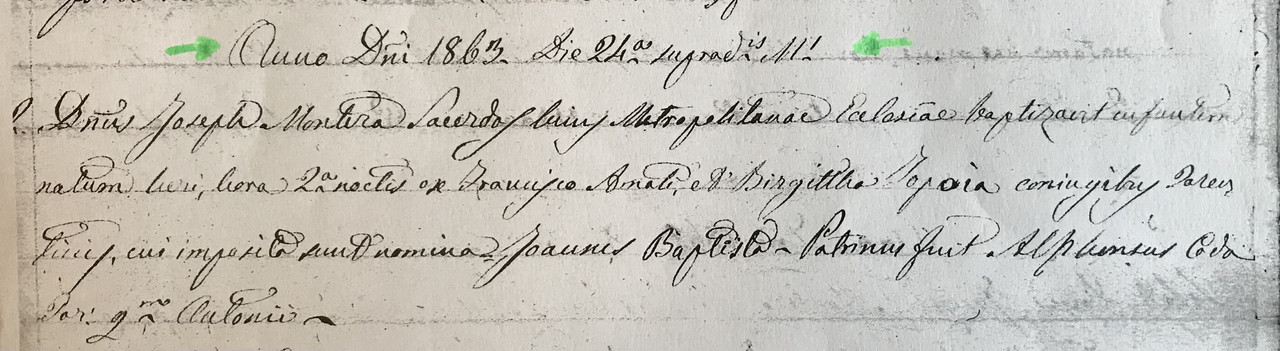 Anno Dñi 1863 Die 24a supradis M'
Dñus Joseph Montera Sacerdos huius Metropolitanae Eclesiae baptizavit infantem
natum heri, hora 2a noctis ex Francisco Amati, et Birgittha coniugibus Taren
tinis, cui imposita sunt nomina = Joannes Baptista - Patrinus fuit Alphonsus Coda
Tar: qm Antonii